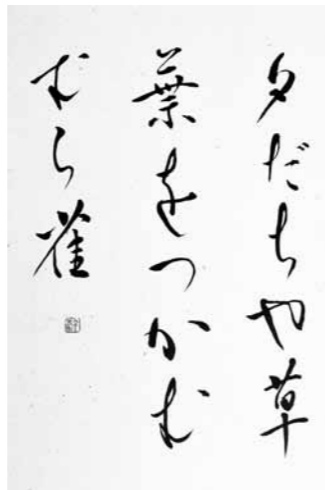 夕だちや草
葉をつかむ
むら雀